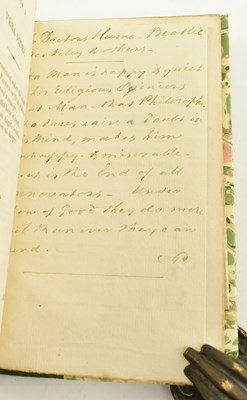 Doctors Hume. Beattie
Berkeley & others.
a Man is happy & quiet
his religious Opinions
at Man. that Philosoph.
o dares raise a doubt in
s Mind, makes him
nhappy. & miserable.
is the End of all
nnovators. Under
ew of Good they do more
l than ever they can
nd.